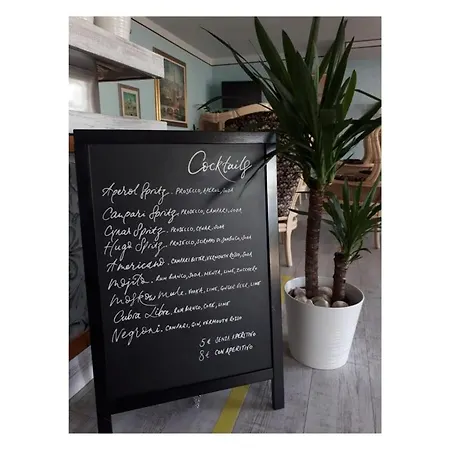 Cocktails
Aperol Spritz. PROSECCO, APEROL, SODA
Campari Spritz. PROSECCO, CAMPARI, SODA
Cynar Spritz. PROSECCO, CYNAR, SODA
Hugo Spritz. PROSECCO, SCIROPPO DI SAMBUCO, SODA
Americano. CAMPARI BITTER, VERMOUTH ROSSO, SODA
Mojito. RUM BIANCO, SODA, MENTA, LIME, ZUCCHERO
Moskow Mule. VODKA, LIME, GINGER BEER, LIME
Cuba Libra. RUM BIANCO, COKE, LIME
Negroni. CAMPARI, GIN, VERMOUTH ROSSO
5€ SENZA APERITIVO
8€ CON APERITIVO